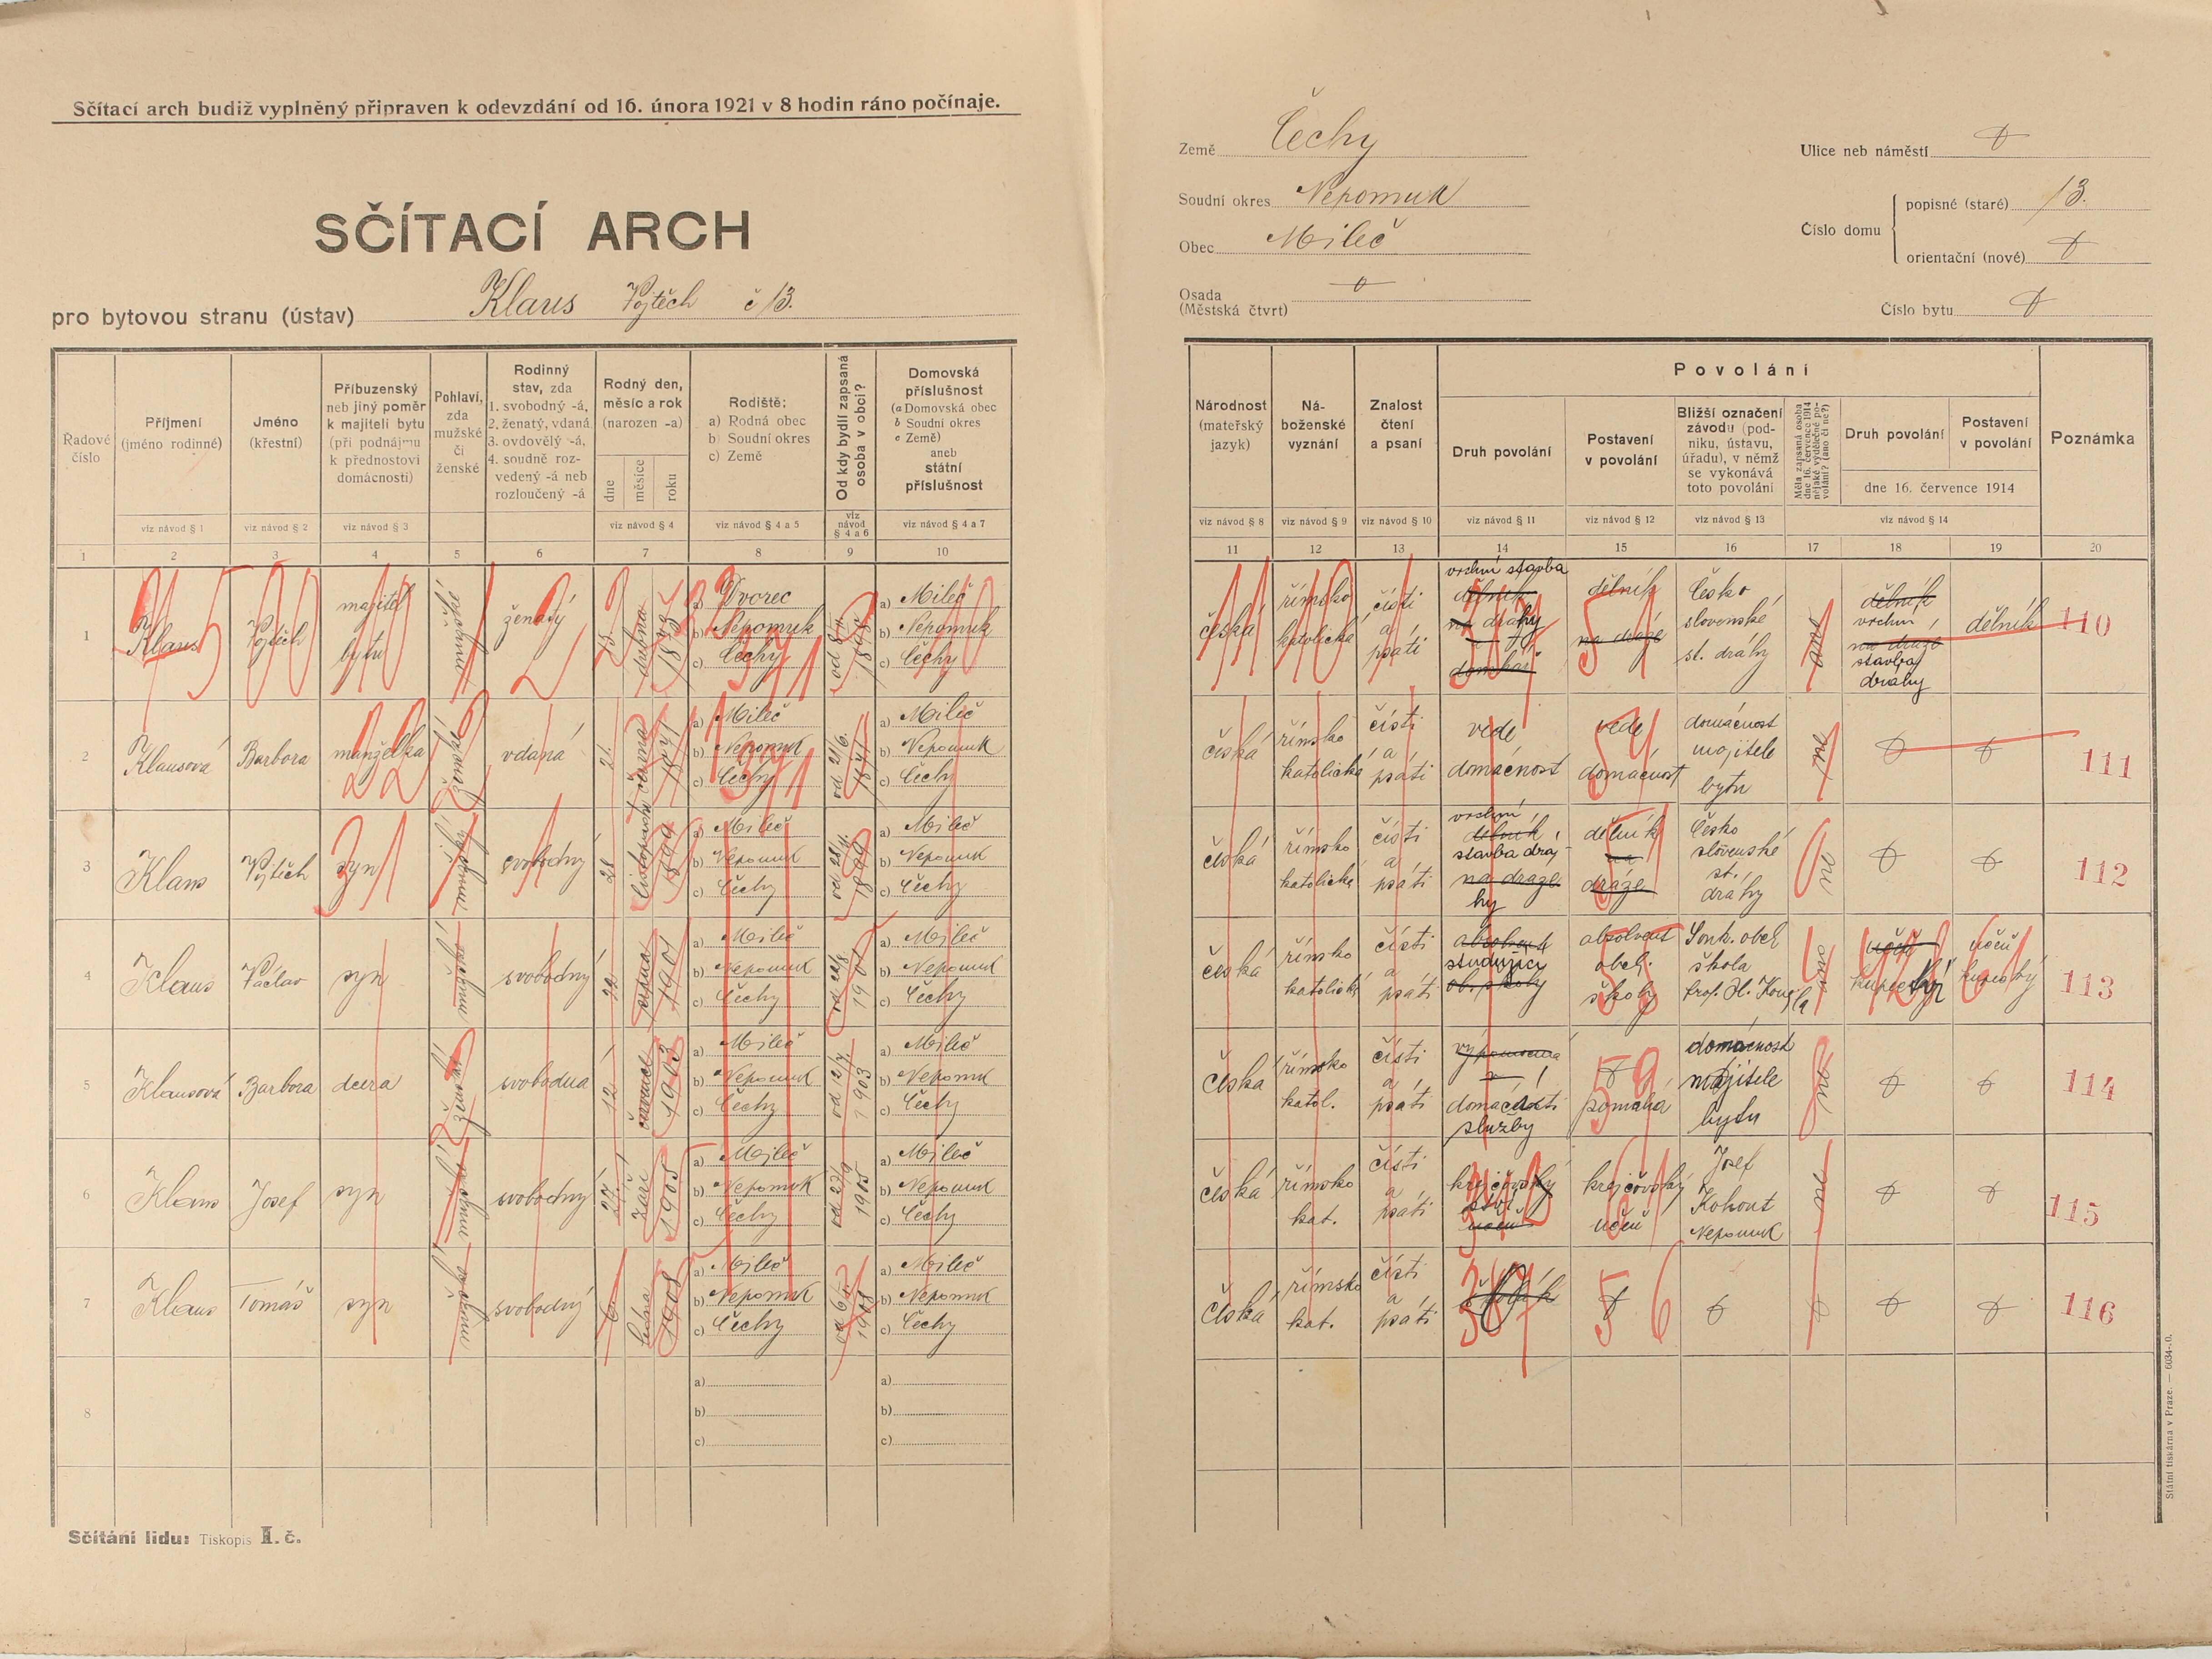 Sčítací arch budiž vyplněný připraven k odevzdání od 16. února 1921 v 8 hodin ráno počínaje.
SČÍTACÍ ARCH
pro bytovou stranu (ústav) Klaus Vojtěch č 13.
Země Čechy
Soudní okres Nepomuk
Obec Mileč
Osada
(Městská čtvrt)
Ulice neb náměstí
Číslo domu
popisné (staré) 13.
orientační (nové)
Číslo bytu
Řadové číslo
Příjmení (jméno rodinné)
Jméno (křestní)
Příbuzenský neb jiný poměr k majiteli bytu (při podnájmu k přednostovi domácnosti)
Pohlaví, zda mužské či ženské
Rodinný stav, zda 1. svobodný -á, 2. ženatý, vdaná 3. ovdovělý -á, 4. soudně rozvedený -á neb rozloučený -á
Rodný den, měsíc a rok (narozen -a)
dne měsíce roku
Rodiště: a) Rodná obec b) Soudní okres c) Země
Od kdy bydlí zapsaná osoba v obci?
Domovská příslušnost (a Domovská obec b Soudní okres c Země) aneb státní příslušnost
viz návod § 1 viz návod § 2 viz návod § 3 viz návod § 4 viz návod § 4 a 5 viz návod § 4 a 6 viz návod § 4 a 7
1 2 3 4 5 6 7 8 9 10
Národnost (mateřský jazyk)
Náboženské vyznání
Znalost čtení a psaní
Povolání
Druh povolání
Postavení v povolání
Bližší označení závodu (podniku, ústavu, úřadu), v němž se vykonává toto povolání
Měla zapsaná osoba dne 16. července 1914 nějaké výdělečné povolání? (ano či ne?)
Druh povolání
Postavení v povolání
dne 16. července 1914
Poznámka
viz návod § 8 viz návod § 9 viz návod § 10 viz návod § 11 viz návod § 12 viz návod § 13 viz návod § 14
11 12 13 14 15 16 17 18 19 20
1 Klaus Vojtěch majitel bytu mužské ženatý 23. dubna 1873 a) Dvorec b) Nepomuk c) Čechy a) Mileč b) Nepomuk c) Čechy
česká římsko katolická čísti a psáti vrchní stavba dělník na dráhy a domkař dělník na dráze Česko slovenské st. dráhy ano dělník vrchní na dráze stavba dráhy dělník 110
2 Klausová Barbora manželka ženské vdaná 21. června 1871 a) Mileč b) Nepomuk c) Čechy od 21/6. 1871 a) Mileč b) Nepomuk c) Čechy
česká římsko katolická čísti a psáti vede domácnost vede domácnost domácnost majitele bytu ne 111
3 Klaus Vojtěch syn mužské svobodný 28 listopadu 1899 a) Mileč b) Nepomuk c) Čechy od 28/11. 1899 a) Mileč b) Nepomuk c) Čechy
česká římsko katolická čísti a psáti vrchní dělník stavba drá- na dráze hy dělník na dráze Česko slovenské st. dráhy ne 112
4 Klaus Václav syn mužské svobodný srpna 1901 a) Mileč b) Nepomuk c) Čechy 1901 a) Mileč b) Nepomuk c) Čechy
česká římsko katolická čísti a psáti absolvent studující ob. školy absolvent obch. školy Souk. obch škola ano učeň kupecký učeň kupecký 113
5 Klausová Barbora dcera ženské svobodna 12 července 1903 a) Mileč b) Nepomuk c) Čechy od 12/7. 1903 a) Mileč b) Nepomuk c) Čechy
česká římsko katol. čísti a psáti domácí služby pomáhá domácnost majitele bytu ne 114
6 Klaus Josef syn mužské svobodný 27. září 1905 a) Mileč b) Nepomuk c) Čechy od 27/9 1905 a) Mileč b) Nepomuk c) Čechy
česká římsko kat. čísti a psáti krejčovský ství učeň krejčovský učeň Josef Kohout Nepomuk ne 115
7 Klaus Tomáš syn mužské svobodný 6. ledna 1908 a) Mileč b) Nepomuk c) Čechy od 6/1 1908 a) Mileč b) Nepomuk c) Čechy
česká římsko kat. čísti a psáti školák 116
8 a) b) c) a) b) c)
Sčítání lidu: Tiskopis I. č.
Státní tiskárna v Praze. — 6034-20.